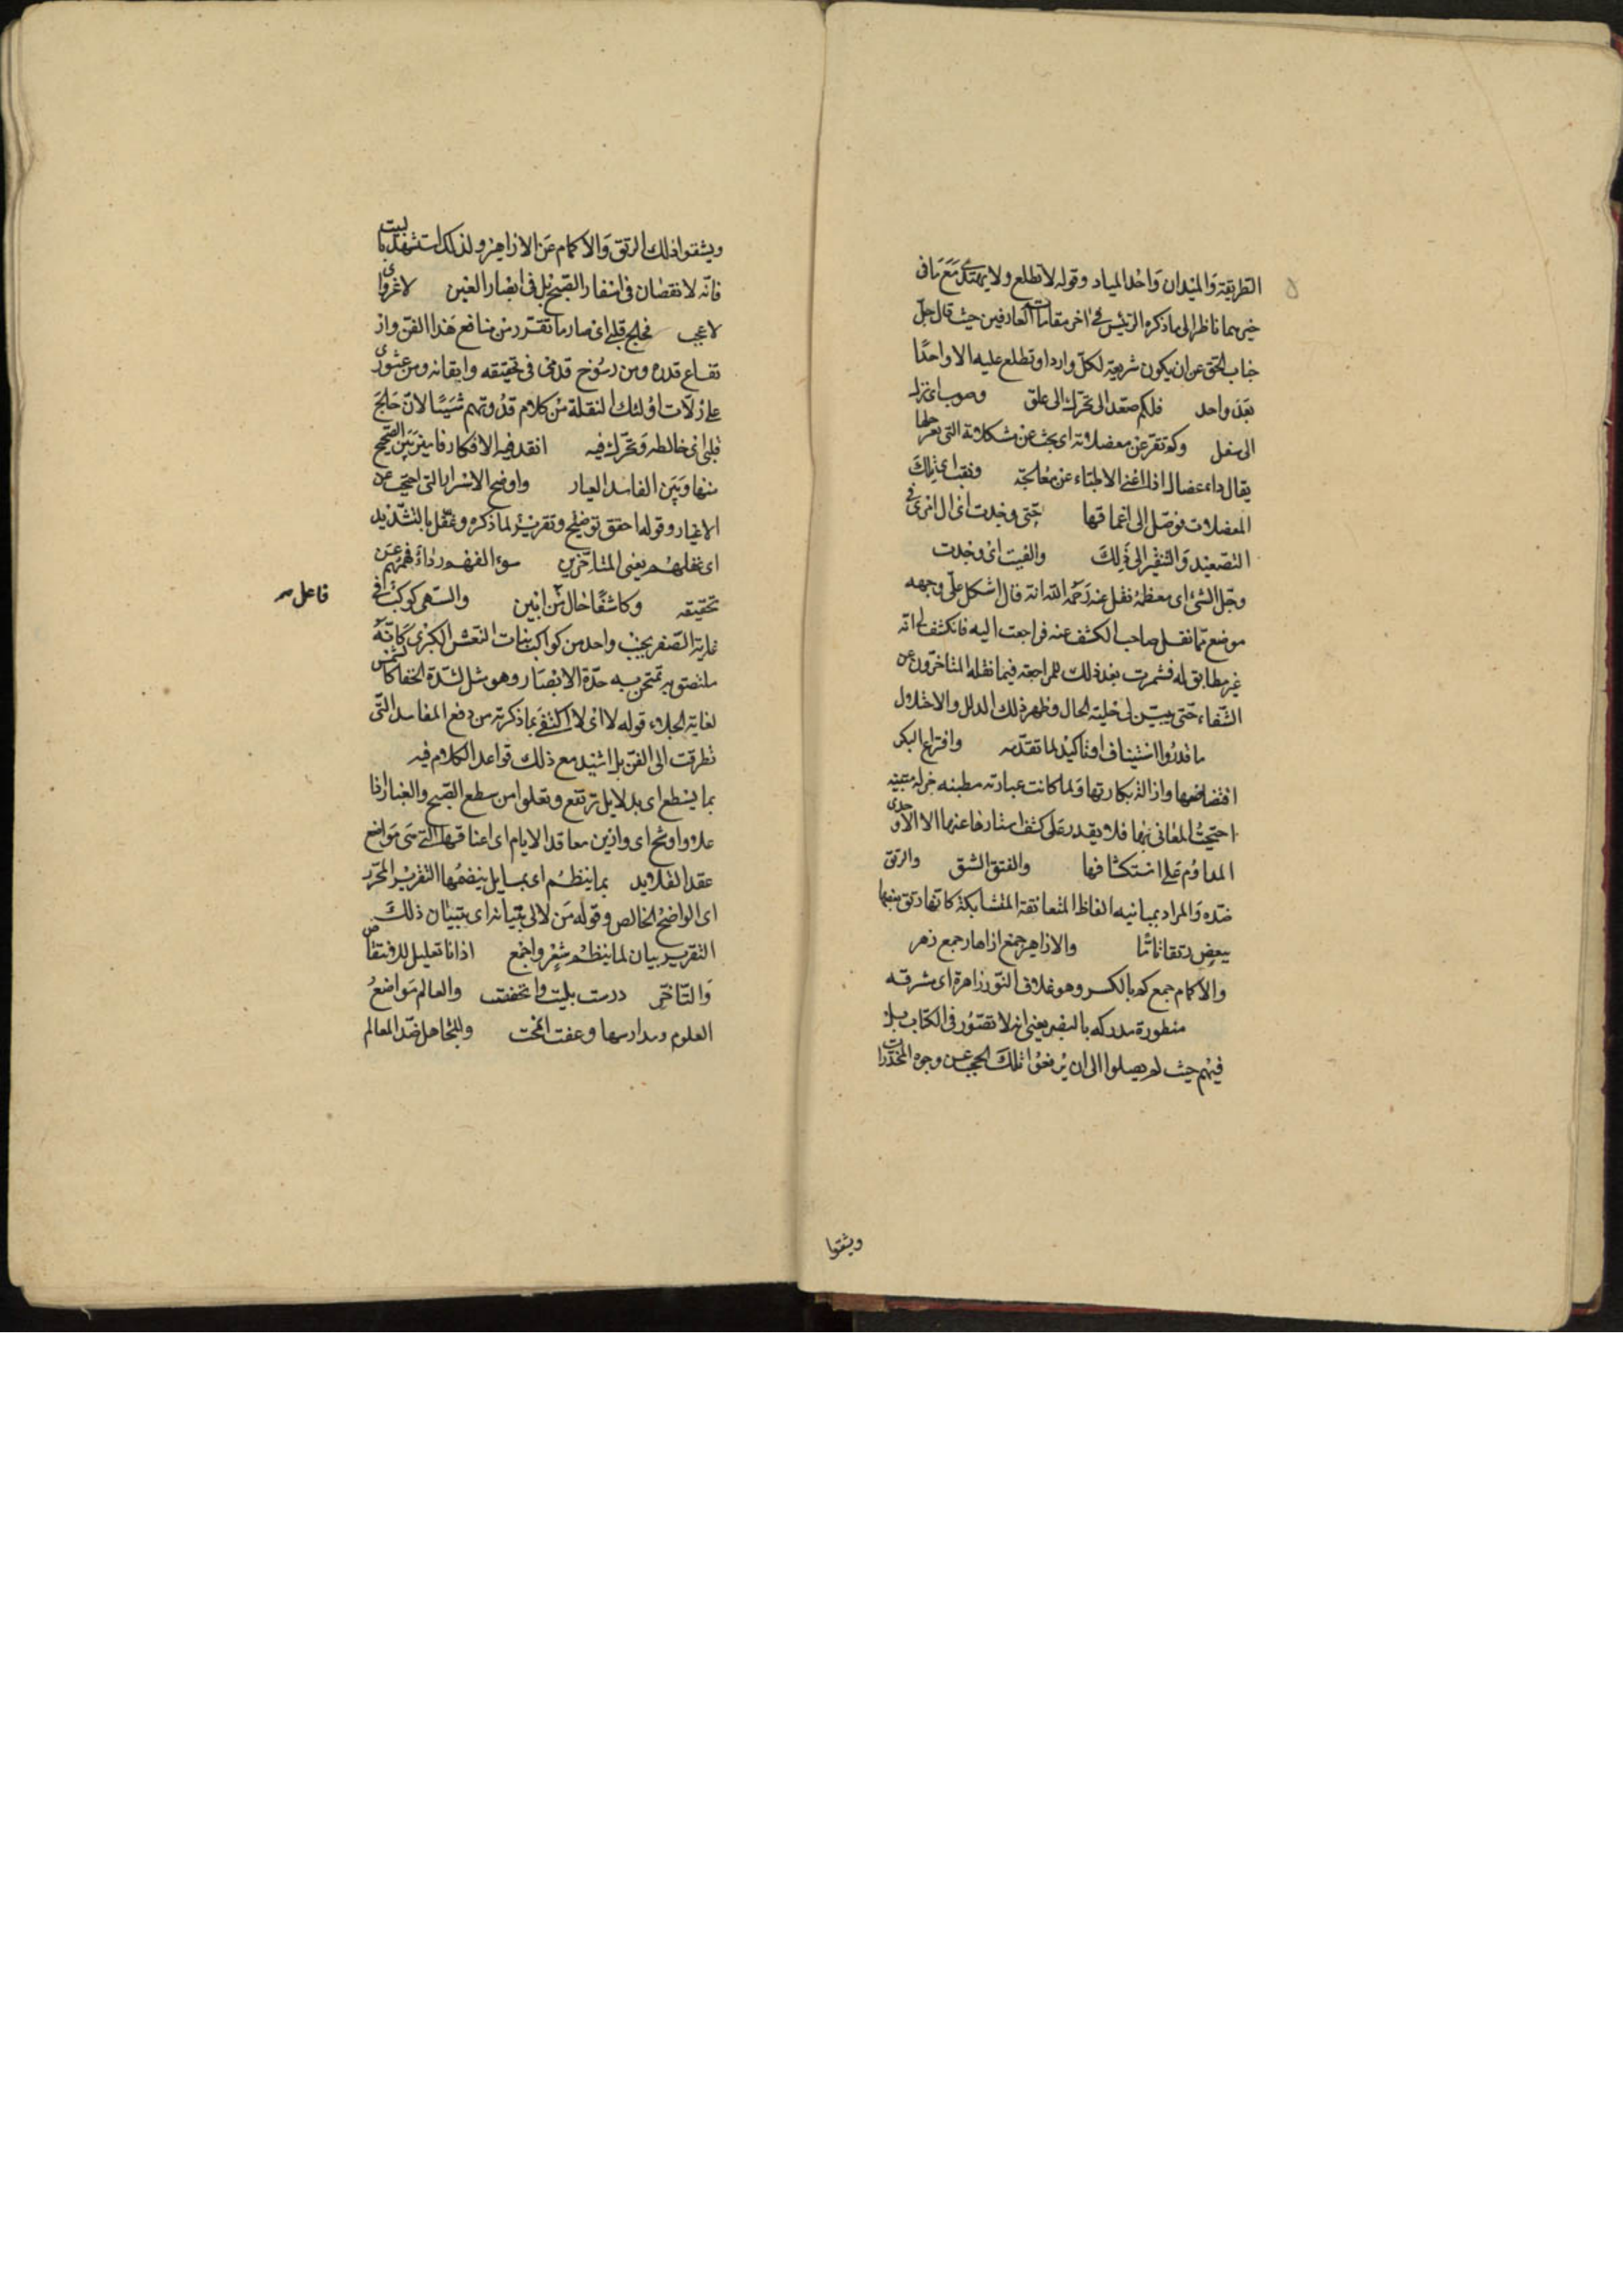 الطريقة والميدان واحد المياد وقوله لا تطلع ولا يهتدى مع ما فى
خيرهما ناظر الى ما ذكره الرئيس فى اخر مقامات العارفين حيث قال جل
جناب الحق عن ان يكون شريعة لكل وارد او تطلع عليه الا واحدا
بعد واحد فلكم صعد الى تحرك الى علق وصوب اى نزل
الى سفل وكم تنقر عن معضلاته اى بحث عن مشكلاته التى
يقال داء عضال اذا اعنى الاطباء عن معالجته ونقب اى تلك
المعضلات توصل الى اعماقها حتى وجدت اى ال امرى فى
التصعيد والتنقير الى ذلك والفيت اى وجدت
وجل الشئ اى معظمه نقل عنه رحمه الله انه قال اشكل على وجهه
موضع مما نقل صاحب الكشف عنه فراجعت اليه فانكشف لى انه
غير مطابق له فشمرت بعد ذلك للمراجعة فيما نقله المتاخرون عن
الشفاء حتى تبين لى جلية الحال وظهر ذلك الدلل والاختلال
ما قدروا استيناف او تاكيد لما تقدمه وافتراع البكر
افتضاضها وازالة بكارتها ولما كانت عبارته مطبنه جزله متينه
احتجبت المعانى بها فلا يقدر على كشف استارها عنها الا الاوحدى
المداوم على استكشافها والفتق الشق والرتق
ضده والمراد بمبانيه الفاظه المتعانقة المتشابكة كانها رتق بعضها
ببعض رتقا تاما والازاهر جمع ازهار جمع زهر
والاكمام جمع كم بالكسر وهو غلاف النور زاهرة اى مشرقه
منظورة مدركه بالبصر يعنى انه لا تقصور فى الكتاب بل
فيهم حيث لم يصلوا الى ان يرفعوا تلك الحجب عن وجوه المخدرات
ويشقوا
ويشقوا ذلك الرتق والاكمام عن الازاهر ولذلك استشهد بالبيت
فانه لا نقصان فى اسفار الصبح بل فى ابصار الغير لا غروا
لا عجب فخلج قلبى اى صار ما تقرر من منافع هذا الفن وار
تفاع قدره ومن رسوخ قدمى فى تحقيقه وايقانه ومن عثورى
على زلات اولئك النقلة من كلام قدوتهم شيئا لان خلج
قلبى اى خالطه وتحرك فيه انقد فيه الافكار فاميز بين الصحيح
منها وبين الفاسد العيار واوضح الاسرار التى احتجب عن
الاغيار وقوله احقق توضيح وتقرير لما ذكره وغفل بالتشديد
اى غفلهم يعنى المتاخرين سوء الفهم رداءة فهمهم عن
فاعل
تحقيقه وكاشفا حال من ابين والسهى كوكب فى
غاية الصغر بجنب واحد من كواكب بنات النعش الكبرى كانه
ملتصق به تمتحن به حدة الابصار وهو مثل لشدة الخفا كالشمس
لغاية الجلاء قوله لا اى لا اكتفى بما ذكرته من دفع المفاسد التى
تطرقت الى الفن بل اشيد مع ذلك قواعد الكلام فيه
بما يسطع اى بدلايل ترتفع وتعلو من سطع الصبح والغبار اذا
علا واوشح اى وازين معاقد الايام اى اعناقها التى هى مواضع
عقد القلايد بما ينظم اى بمسايل ينضمها التقرير المحرر
اى الواضح الخالص وقوله من لالى تبيانه اى تبيان ذلك
التقرير بيان لما ينظم شعر واجمع اذانا تعليل للافتقاص
والتاخر درست بليت وانخفضت والعالم مواضع
العلوم ومدارسها وعفت انمحت والمجاهل ضد المعالم